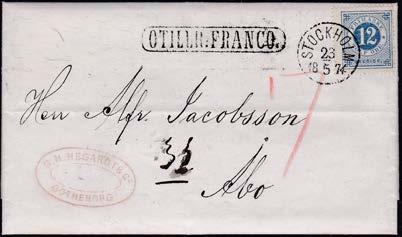 OTILLR:FRANCO.
STOCKHOLM
23
18 5 74
12
Herr Alfr. Jacobsson
Åbo
C.H. HEGARDT & Co
GÖTHEBORG